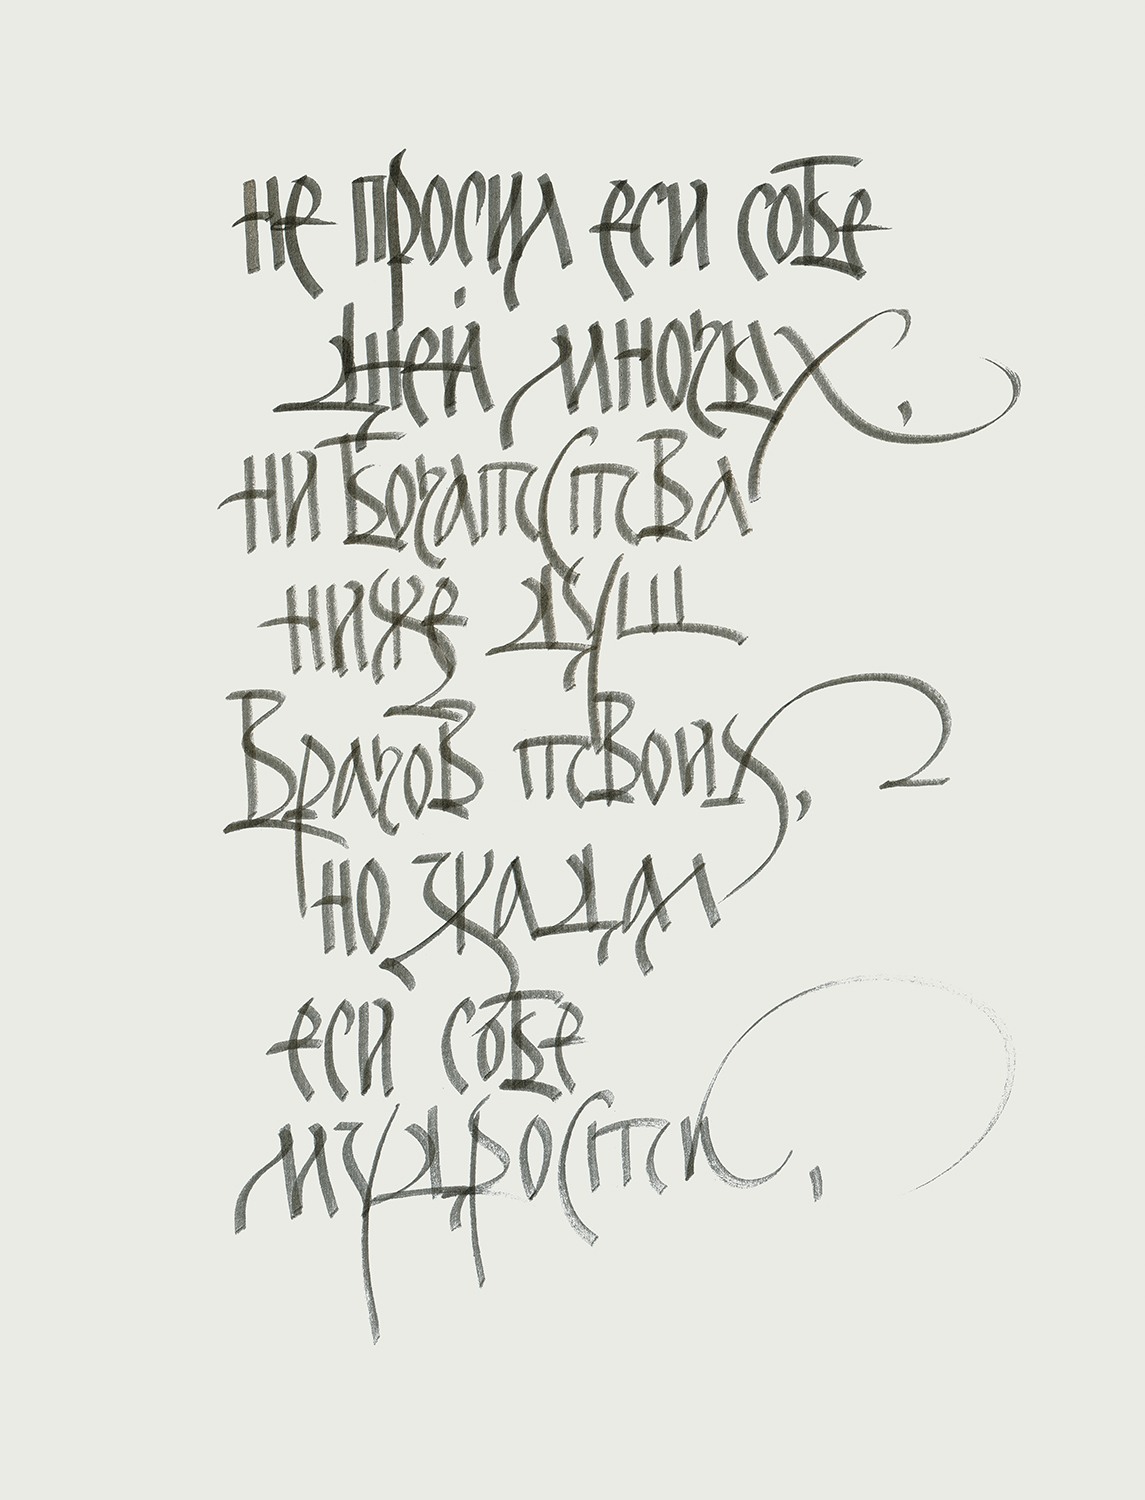 не просил еси собе
дней многых,
ни богатства
ниже душ
врагов твоих,
но жадал
еси собе
мудрости,